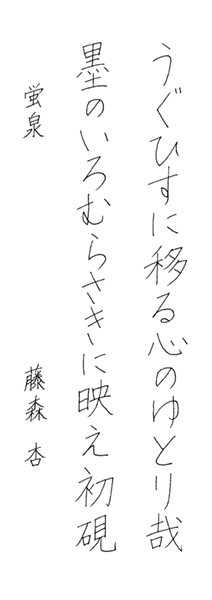 うぐひすに移る心のゆとり哉
墨のいろむらさきに映え初硯
蛍泉　藤森 杏